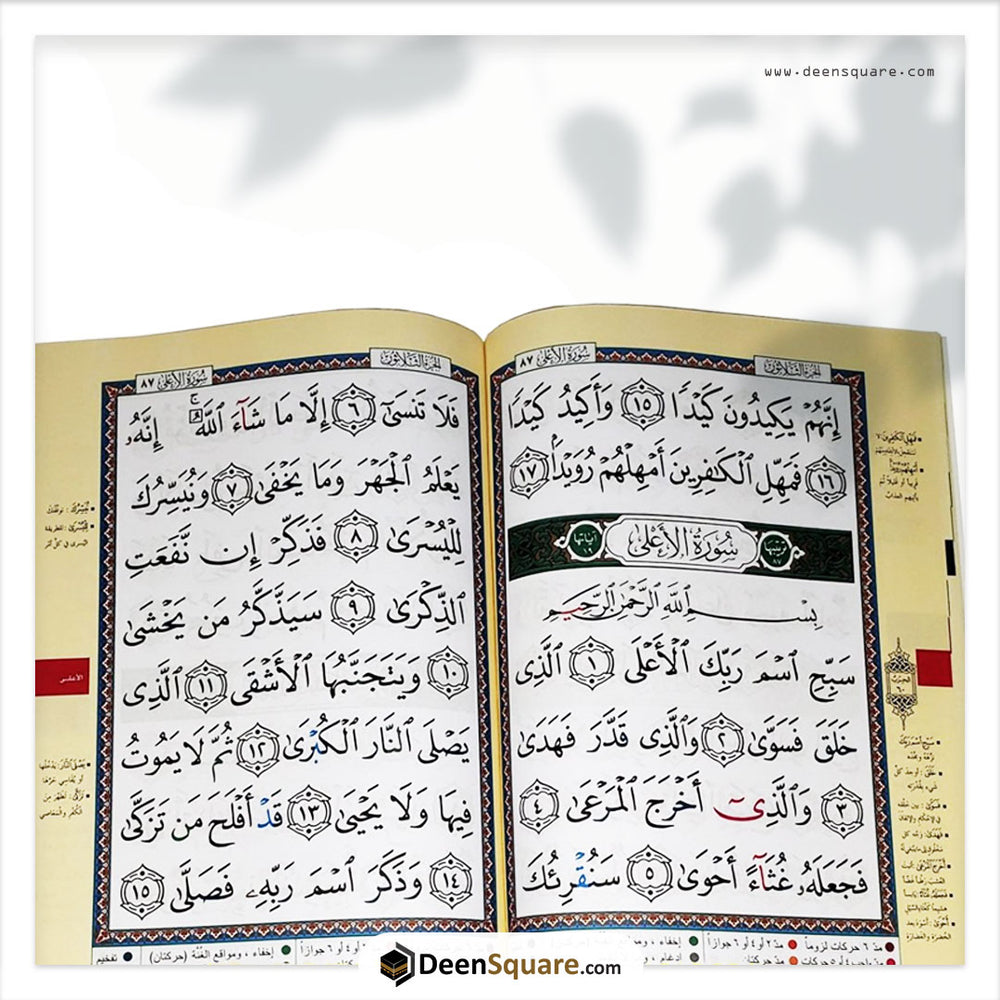 www.deensquare.com
الجزء الثلاثون
سورة الأعلى ٨٧
إِنَّهُمْ يَكِيدُونَ كَيْدًا ١٥ وَأَكِيدُ كَيْدًا
١٦ فَمَهِّلِ الْكَٰفِرِينَ أَمْهِلْهُمْ رُوَيْدًۢا ١٧
ترتيبها ٨٧ سُورَةُ الأَعْلَىٰ آياتها ١٩
بِسْمِ اللَّهِ الرَّحْمَٰنِ الرَّحِيمِ
سَبِّحِ ٱسْمَ رَبِّكَ ٱلْأَعْلَى ١ ٱلَّذِى
خَلَقَ فَسَوَّىٰ ٢ وَٱلَّذِى قَدَّرَ فَهَدَىٰ
٣ وَٱلَّذِىٓ أَخْرَجَ ٱلْمَرْعَىٰ ٤
فَجَعَلَهُۥ غُثَآءً أَحْوَىٰ ٥ سَنُقْرِئُكَ
الجزء الثلاثون
سورة الأعلى ٨٧
فَلَا تَنسَىٰٓ ٦ إِلَّا مَا شَآءَ ٱللَّهُ ۚ إِنَّهُۥ
يَعْلَمُ ٱلْجَهْرَ وَمَا يَخْفَىٰ ٧ وَنُيَسِّرُكَ
لِلْيُسْرَىٰ ٨ فَذَكِّرْ إِن نَّفَعَتِ
ٱلذِّكْرَىٰ ٩ سَيَذَّكَّرُ مَن يَخْشَىٰ
١٠ وَيَتَجَنَّبُهَا ٱلْأَشْقَى ١١ ٱلَّذِى
يَصْلَى ٱلنَّارَ ٱلْكُبْرَىٰ ١٢ ثُمَّ لَا يَمُوتُ
فِيهَا وَلَا يَحْيَىٰ ١٣ قَدْ أَفْلَحَ مَن تَزَكَّىٰ
١٤ وَذَكَرَ ٱسْمَ رَبِّهِۦ فَصَلَّىٰ ١٥
الأعلى
مدّ ٦ حركات لزوماً
مدّ ٢ أو ٤ أو ٦ جوازاً
مدّ حركتان
إخفاء، ومواقع الغُنَّة (حركتان)
تفخيم
DeenSquare.com